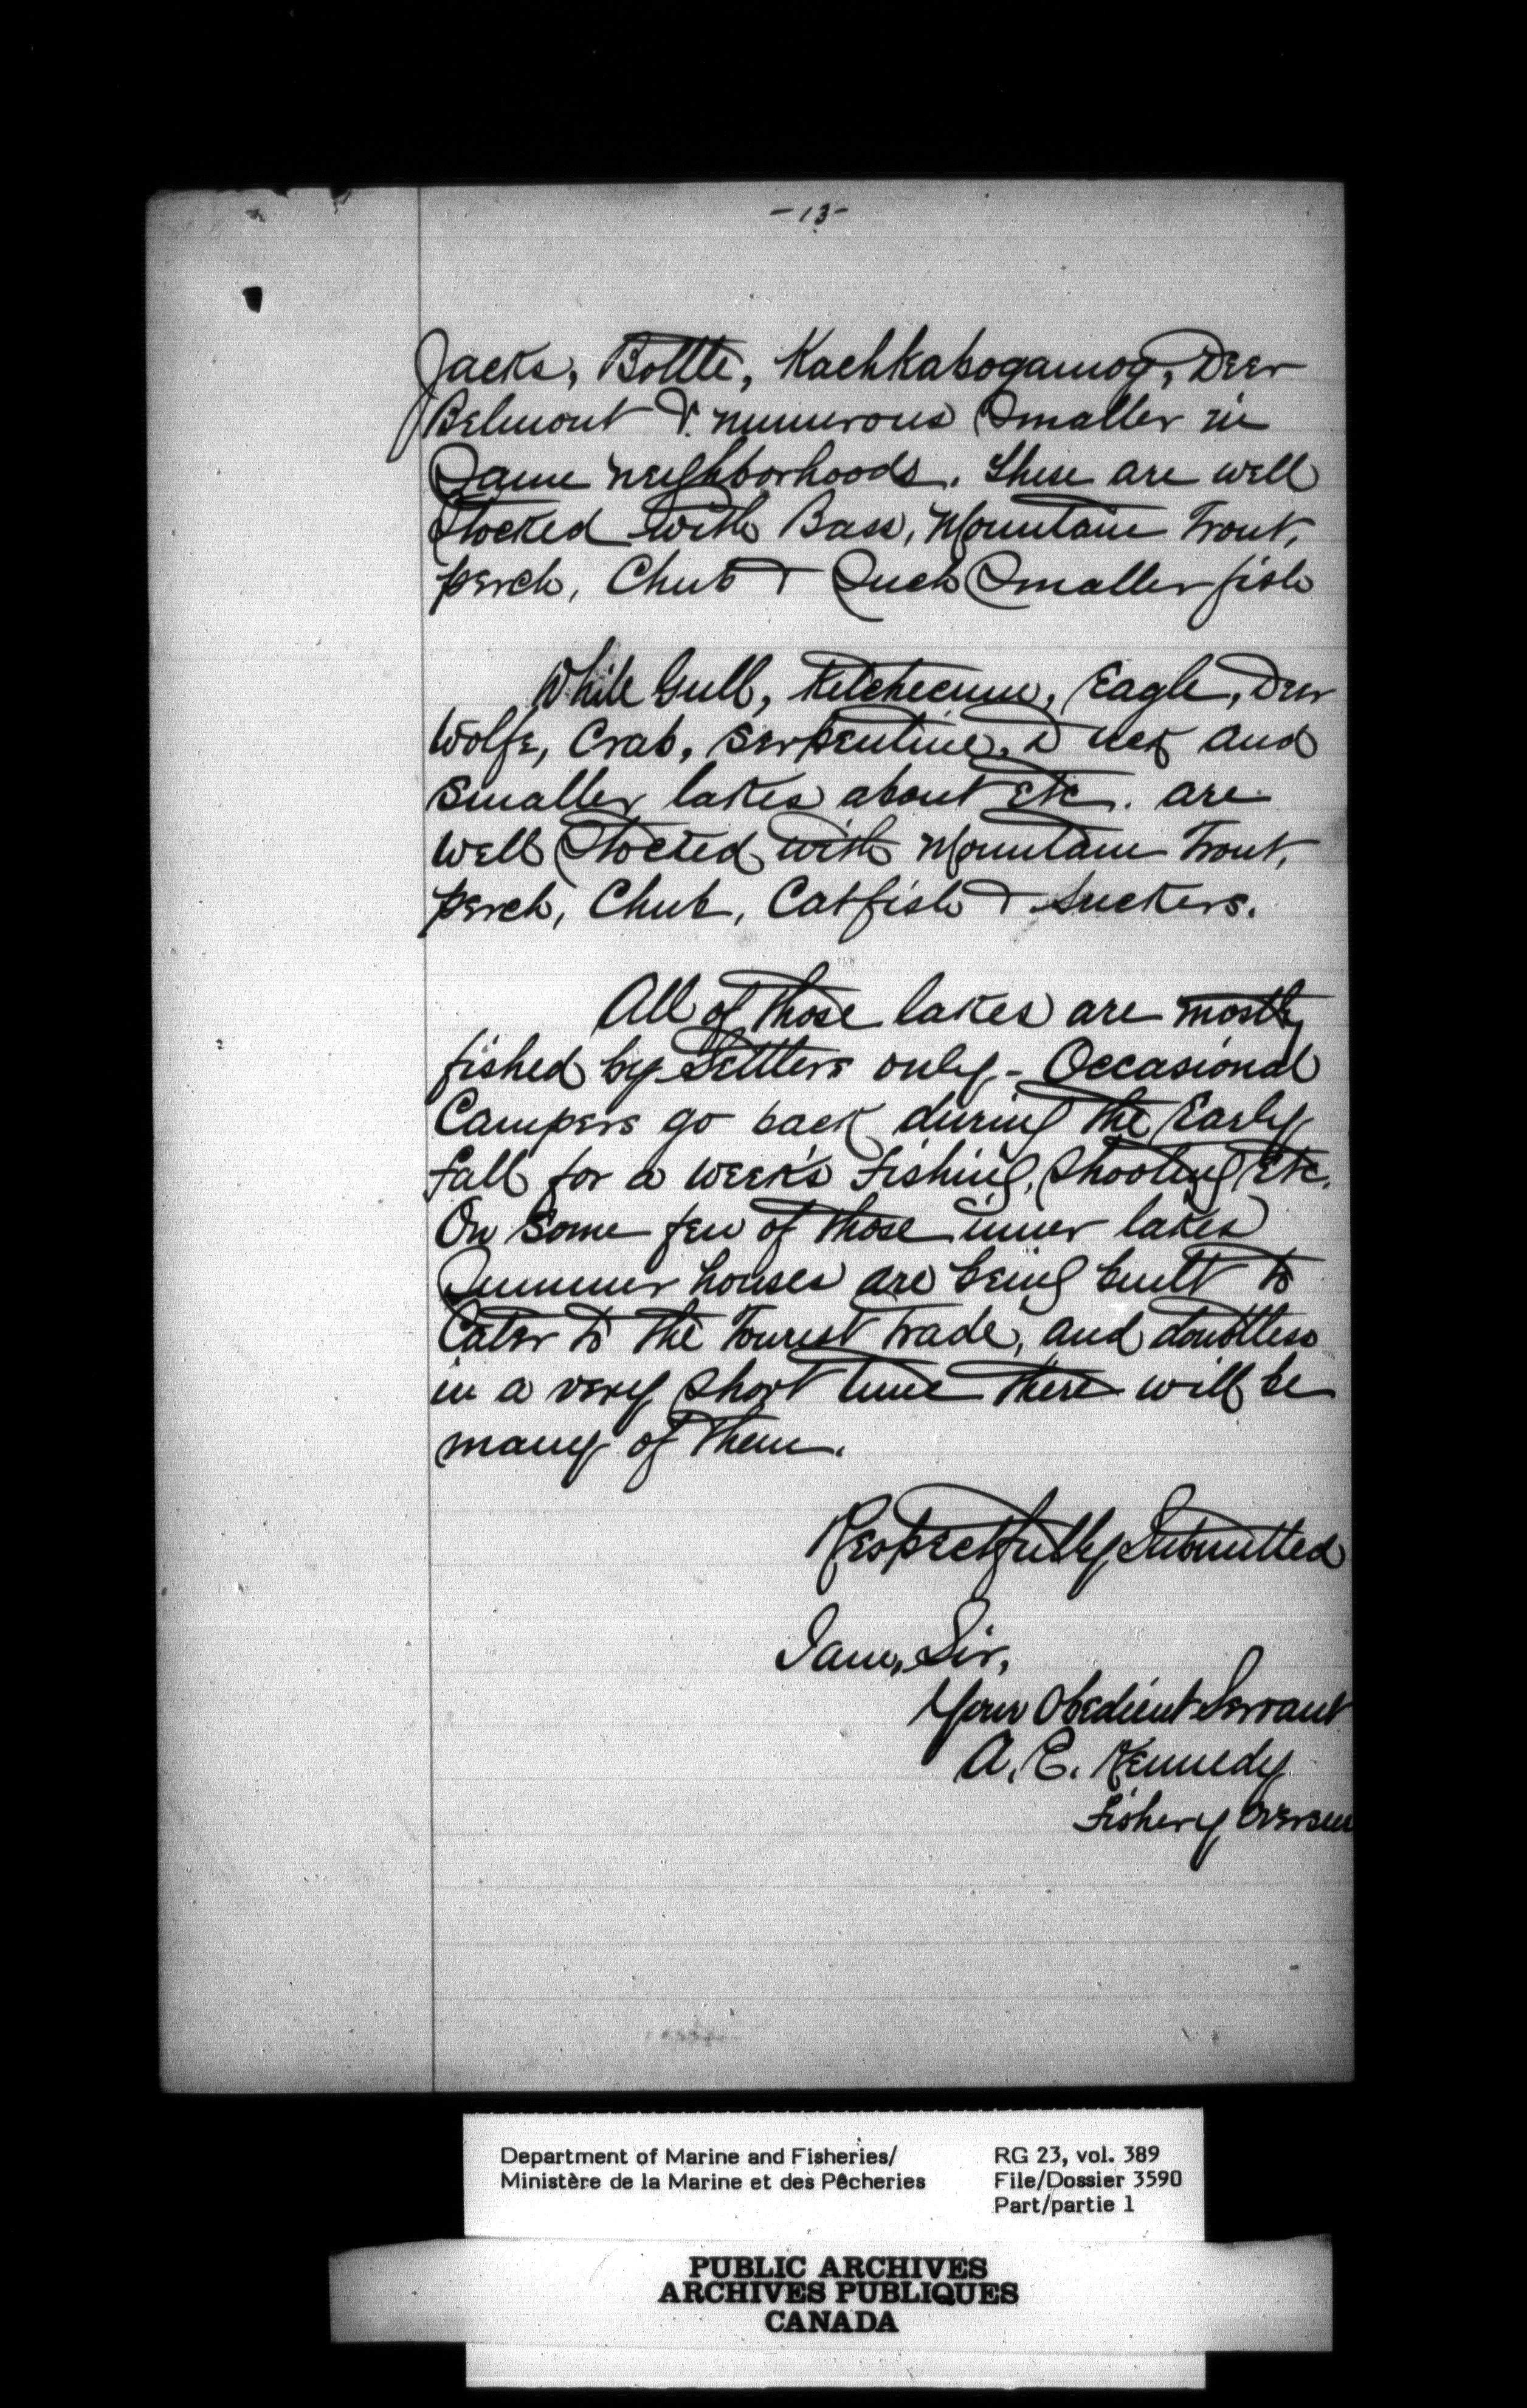 -13-
Jacks, Bottle, Kachkabogamog, Deer
Belmont & numerous smaller in
same neighborhoods. These are well
stocked with Bass, Mountain Trout,
perch, Chub & such smaller fish
While Gull, Ketchecum, Eagle, Deer
Wolfe, Crab, Serpentine, Duck and
smaller lakes about etc. are
well stocked with Mountain Trout,
perch, Chub, Catfish & Suckers.
All of those lakes are mostly
fished by Settlers only - Occasional
Campers go back during the Early
Fall for a week's Fishing, Shooting Etc.
On some few of those inner lakes
Summer houses are being built to
Cater to the Tourist Trade, and doubtless
in a very short time there will be
many of them.
Respectfully Submitted
I am, Sir,
Your Obedient Servant
A. E. Kennedy
Fishery Overseer
Department of Marine and Fisheries/ RG 23, vol. 389
Ministère de la Marine et des Pêcheries File/Dossier 3590
Part/partie 1
PUBLIC ARCHIVES
ARCHIVES PUBLIQUES
CANADA